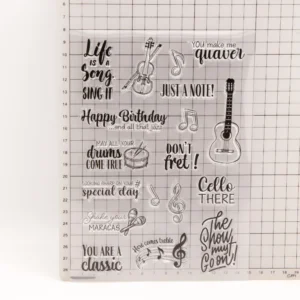 Life
IS A
Song,
SING IT
You make me
quaver
JUST A NOTE!
Happy Birthday
and all that jazz
MAY ALL YOUR
drums
COME TRUE
DON'T
fret!
special day
Cello
THERE
Shake your
MARACAS
YOU ARE A
classic
Here comes treble
The
Show
must
Go on!